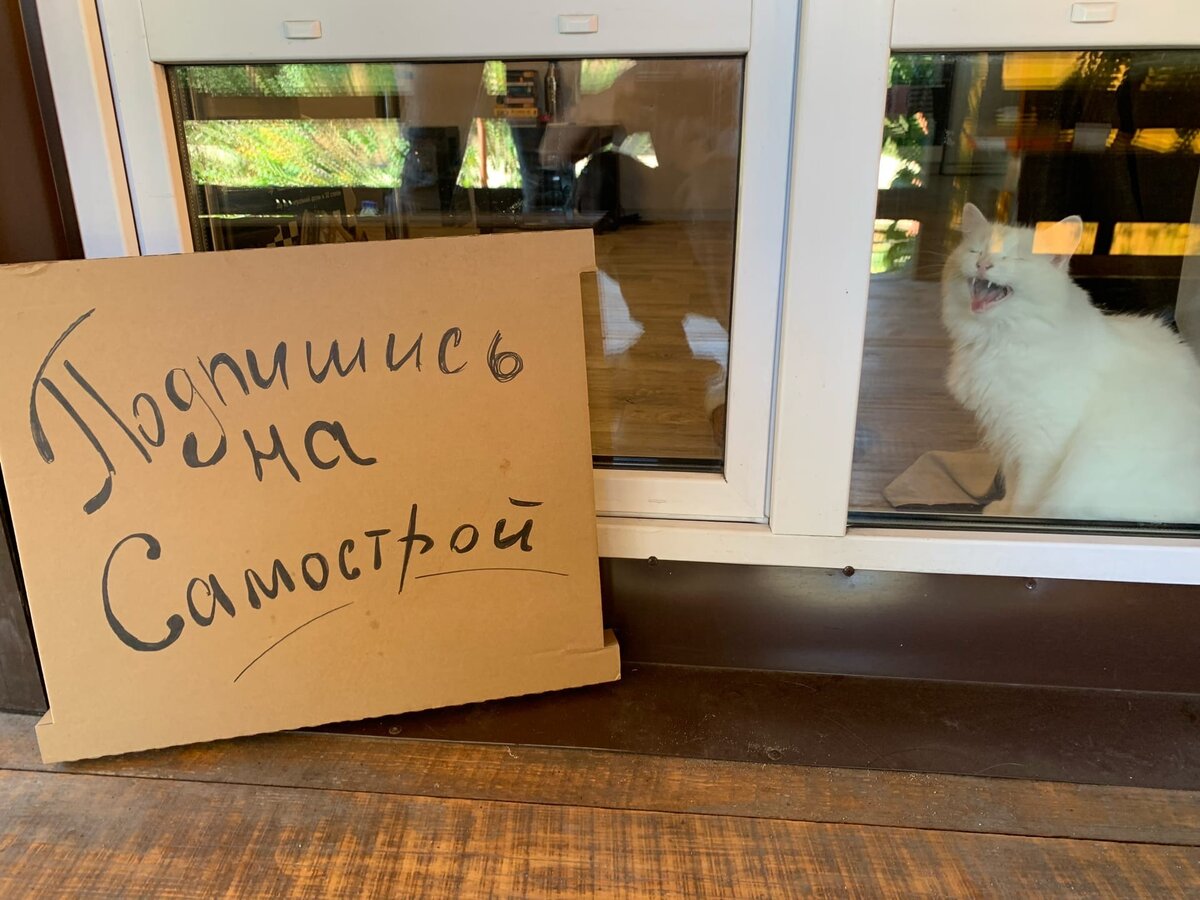 Подпишись
на
Самострой